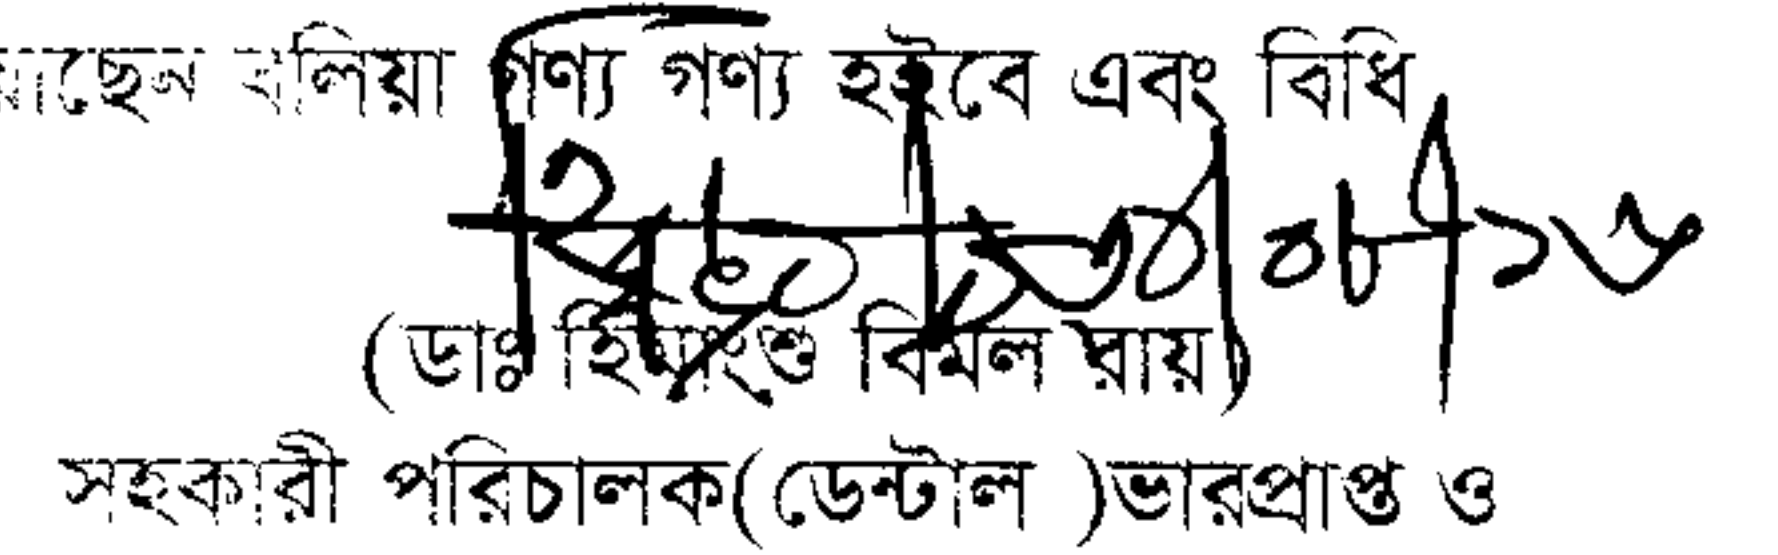 বলিয়া গণ্য গণ্য হইবে এবং বিধি
(ডাঃ হিমাংশু বিমল রায়)
সহকারী পরিচালক(ডেন্টাল )ভারপ্রাপ্ত ও